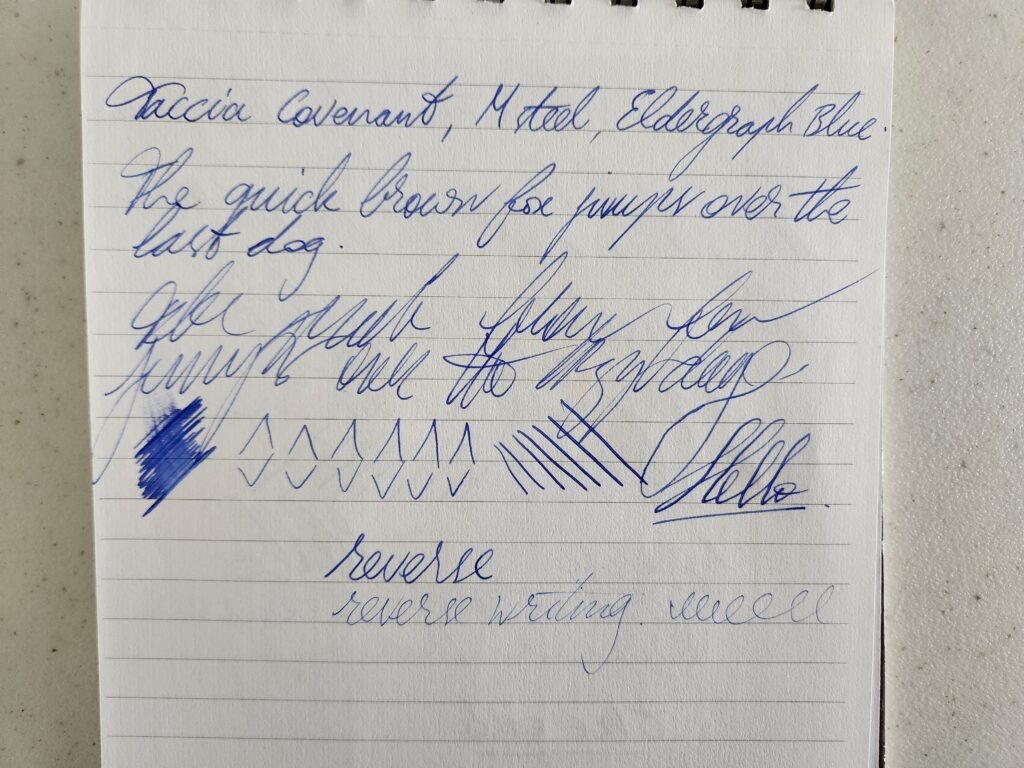 Taccia Covenant, M steel, Eldergraph Blue.
The quick brown fox jumps over the
last dog.
quick
jumps over the
Hello
reverse
reverse writing.